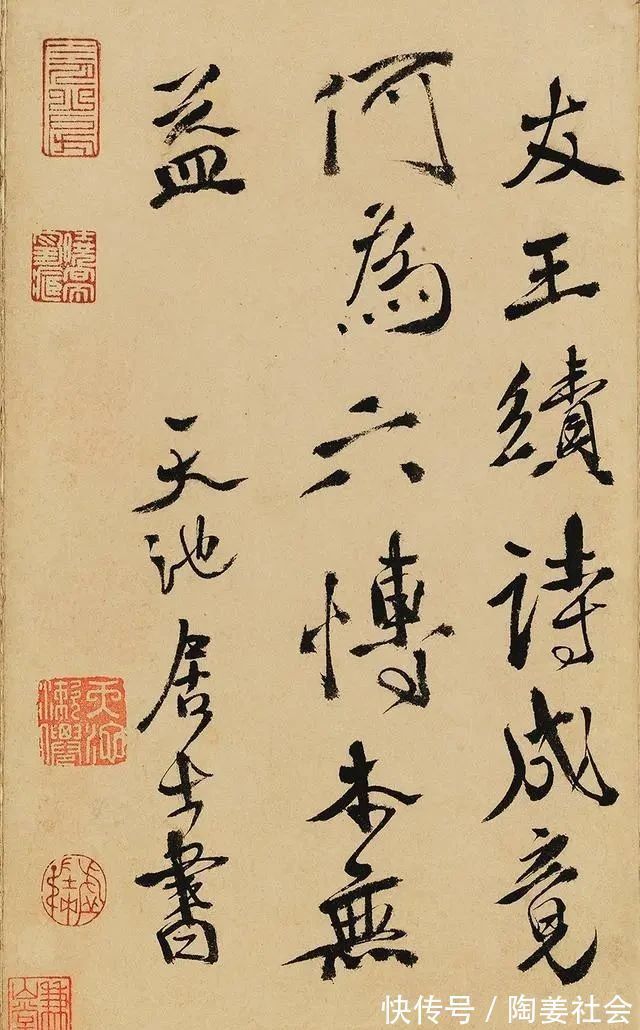 友王績詩成竟
何為六愽本無
益
天池居士書
快传号 / 陶姜社会